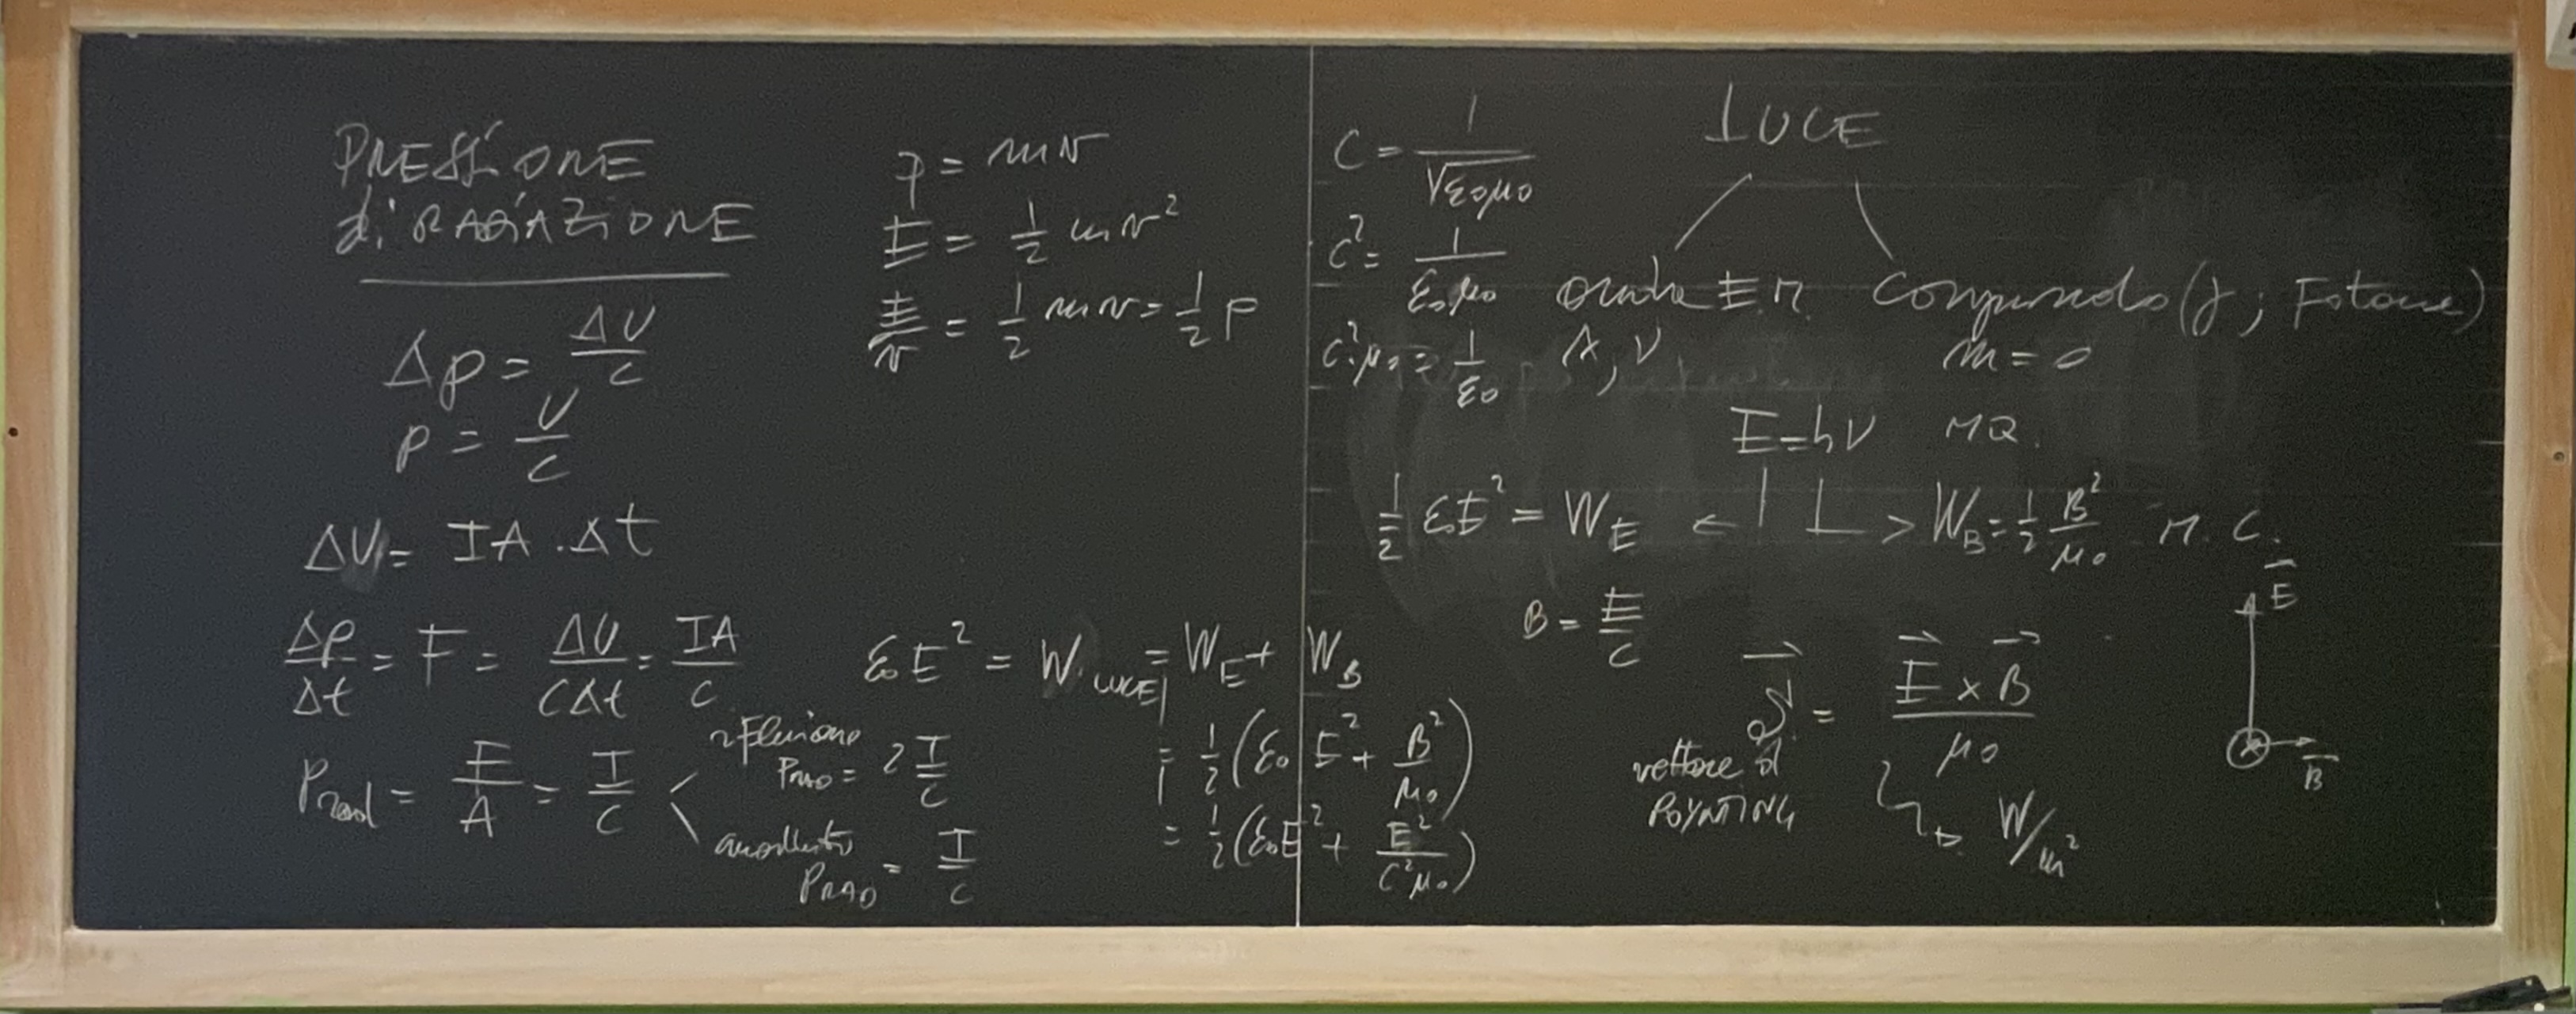 PRESSIONE
di RADIAZIONE
Δp = ΔU/c
p = U/c
ΔU = IA · Δt
Δp/Δt = F = ΔU/cΔt = IA/c
Prad = F/A = I/c
riflessione
PRAD = 2 I/c
assorbimento
PRAD = I/c
p = mv
E = 1/2 mv²
E/v = 1/2 mv = 1/2 p
ε₀E² = W LUCE = WE + WB
= 1/2 (ε₀ E² + B²/μ₀)
= 1/2 (ε₀E² + E²/c²μ₀)
c = 1/√ε₀μ₀
c² = 1/ε₀μ₀
c²·μ₀ = 1/ε₀
LUCE
onda E.M.
λ, ν
(γ; Fotone)
m = 0
E = hν MQ.
1/2 ε₀E² = WE < > WB = 1/2 B²/μ₀ M. C.
B = E/c
S = E × B / μ₀
vettore di
POYNTING
W/m²
E
B